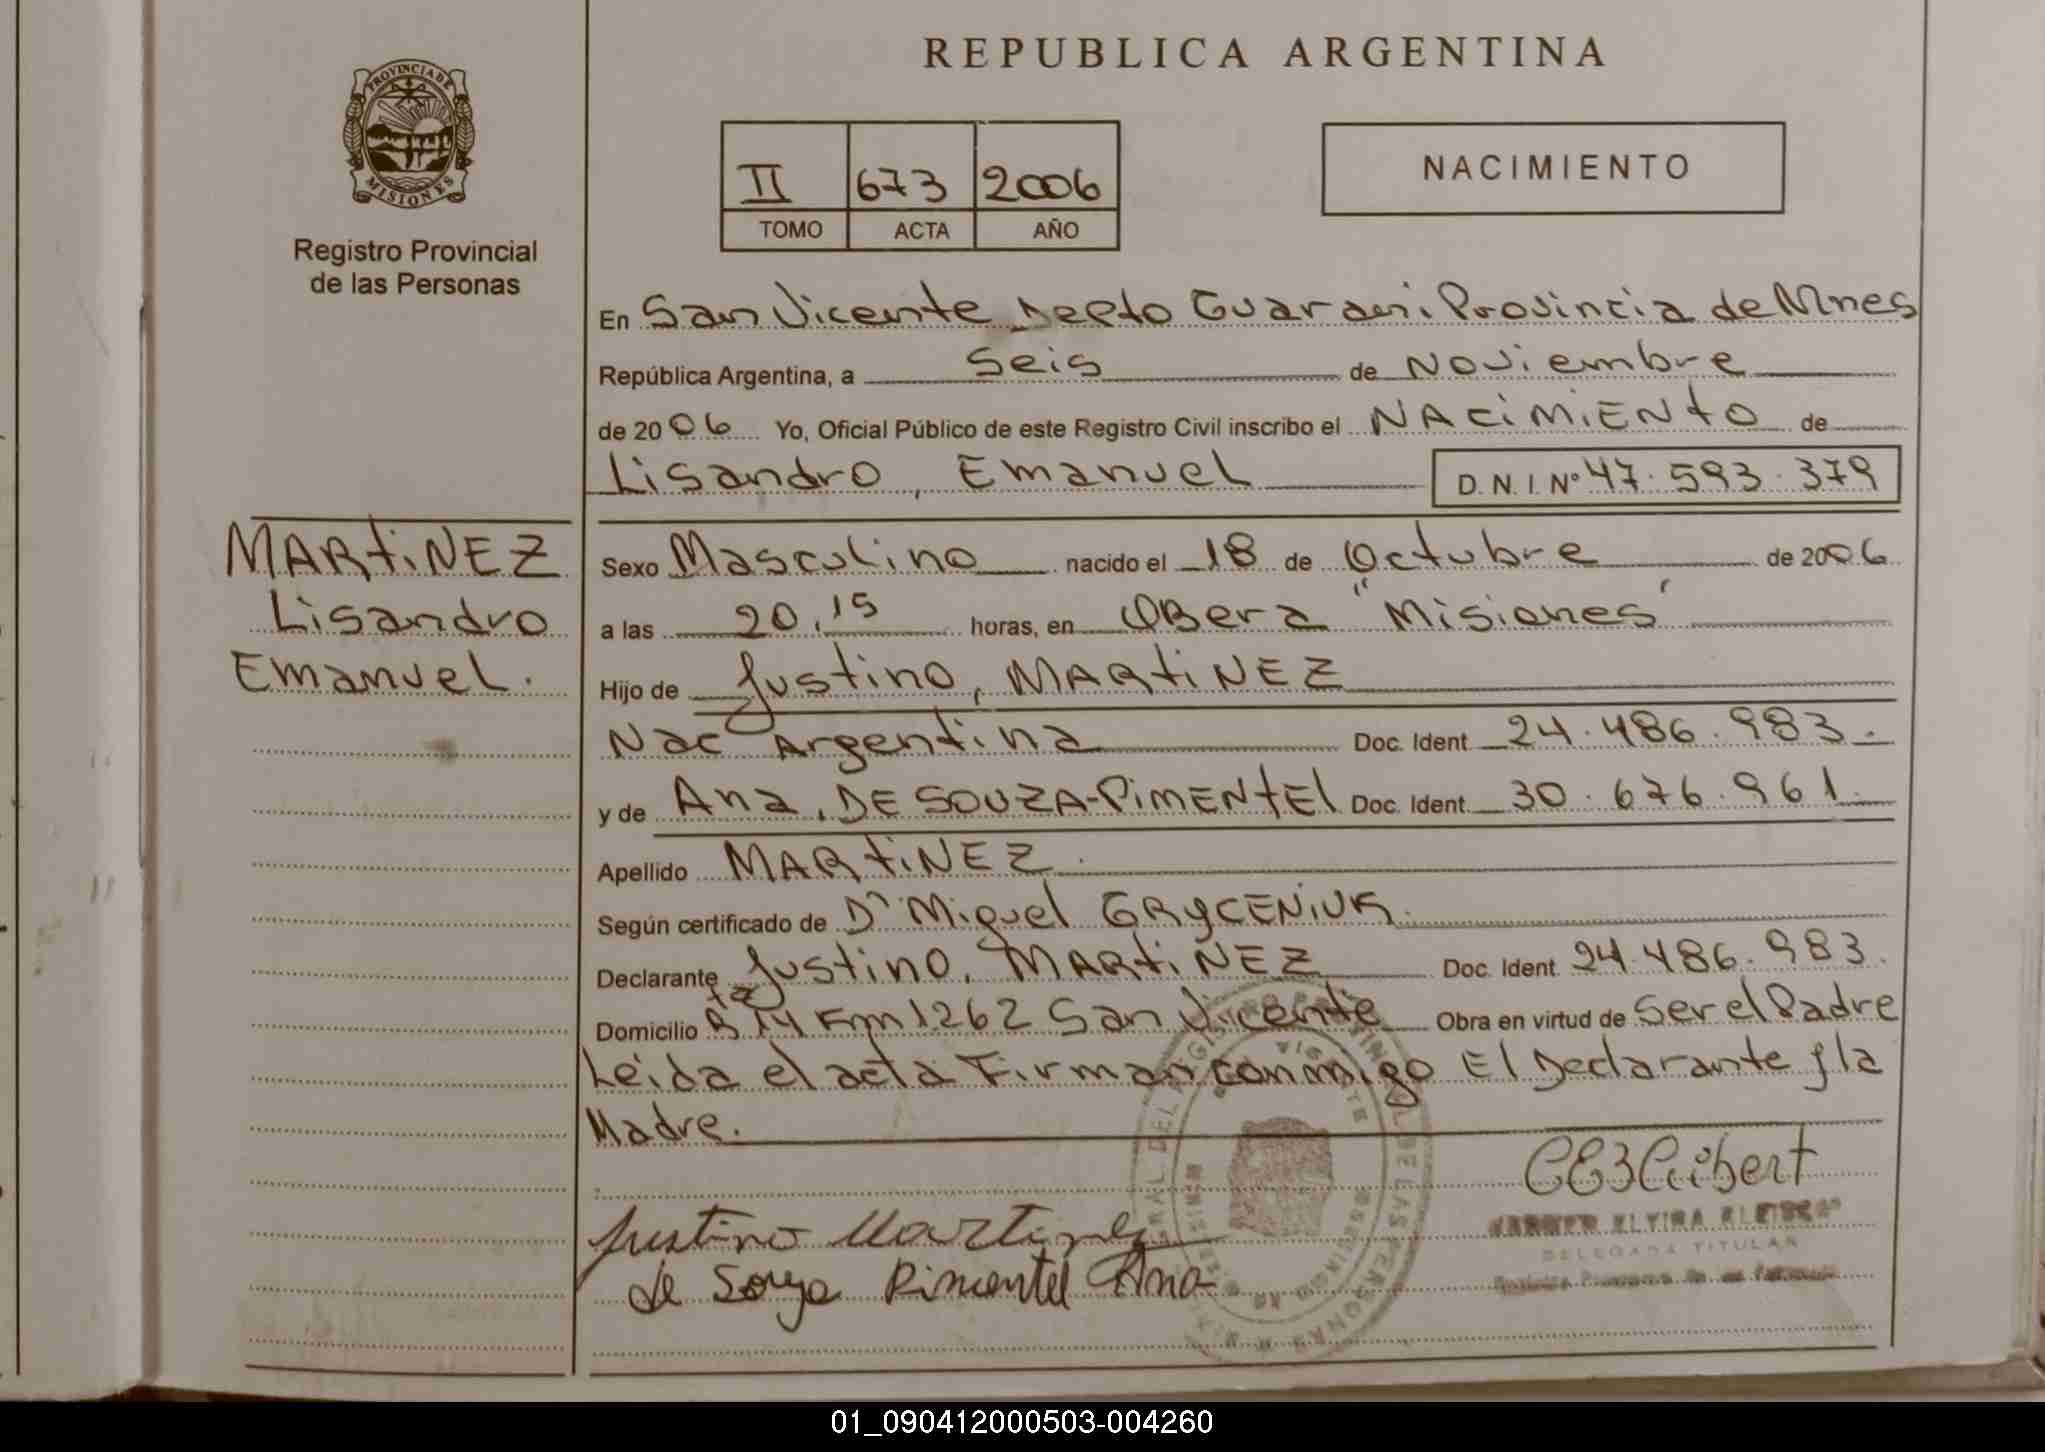 REPUBLICA ARGENTINA
PROVINCIA DE
MISIONES
Registro Provincial
de las Personas
II 673 2006
TOMO ACTA AÑO
NACIMIENTO
En San Vicente Depto Guarani Provincia de Mnes
República Argentina, a Seis de Noviembre
de 2006 Yo, Oficial Público de este Registro Civil inscribo el NACIMIENTO de
Lisandro, Emanuel D.N.I. Nº 47.593.379
MARTINEZ
Lisandro
Emanuel.
Sexo Masculino nacido el 18 de Octubre de 2006
a las 20,15 horas, en Obera "Misiones"
Hijo de Justino, MARTINEZ
Nac Argentina Doc. Ident 24.486.983.
y de Ana, DE SOUZA-PIMENTEL Doc. Ident. 30.676.961.
Apellido MARTINEZ.
Según certificado de Dr Miguel GRYCENIUK.
Declarante Justino, MARTINEZ Doc. Ident. 24.486.983.
Domicilio Rta 14 Km 1262 San Vicente Obra en virtud de Ser el Padre
Leida el acta Firman conmigo El Declarante y la
Madre.
Justino Martinez
de Souza Pimentel Ana
DELEGADA TITULAR
01_090412000503-004260